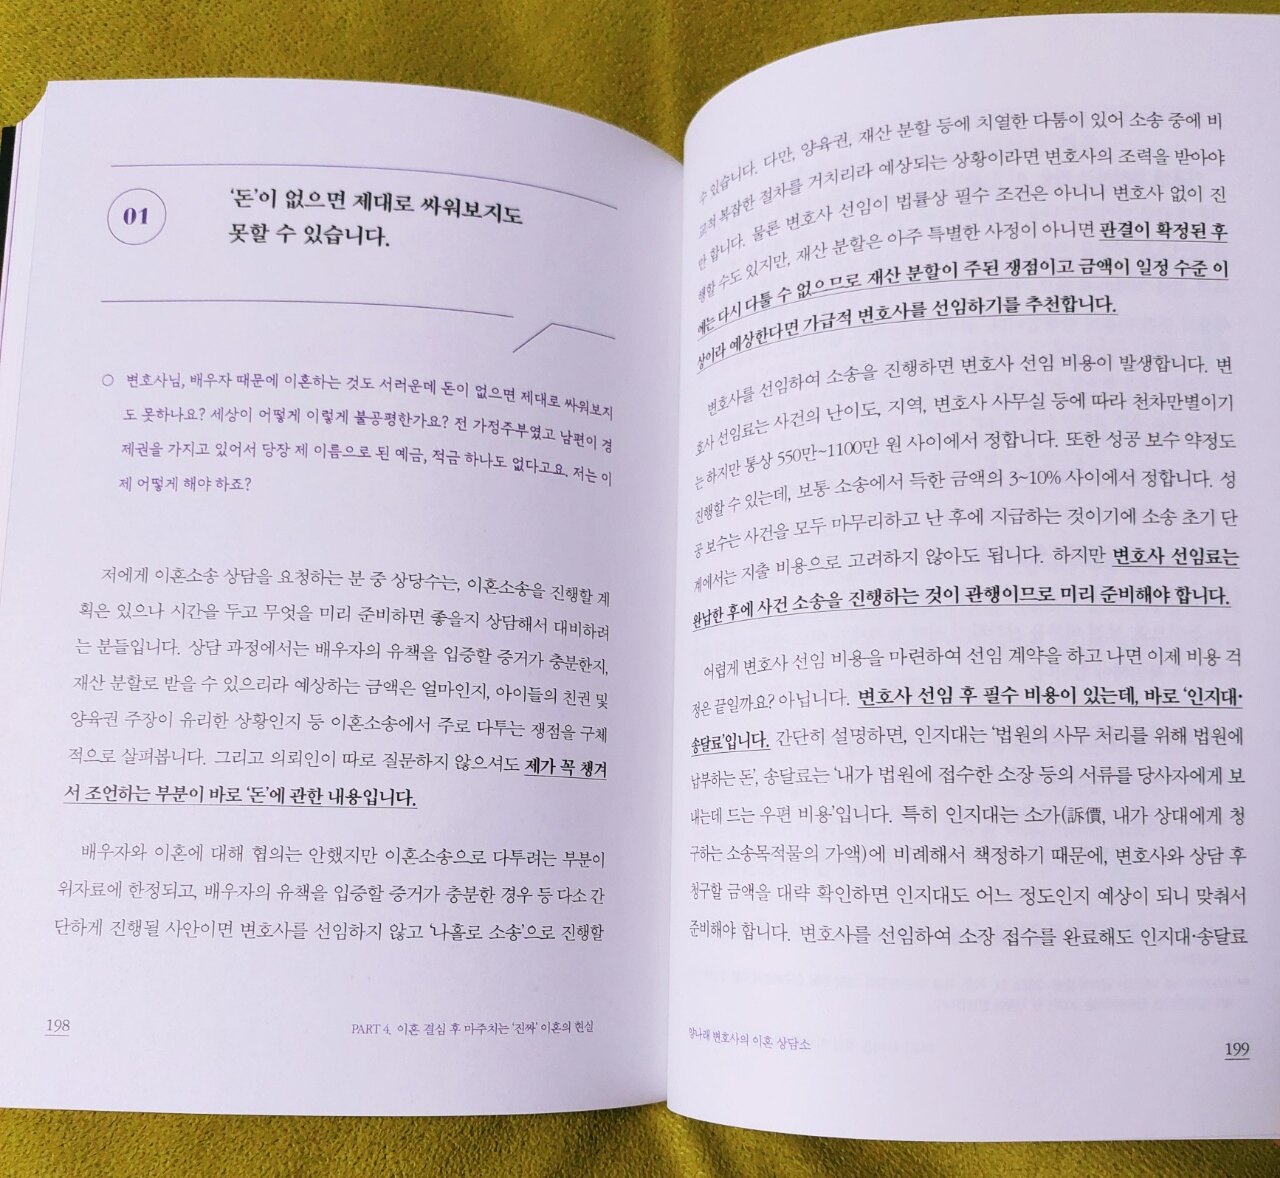 01
‘돈’이 없으면 제대로 싸워보지도
못할 수 있습니다.
○ 변호사님, 배우자 때문에 이혼하는 것도 서러운데 돈이 없으면 제대로 싸워보지
도 못하나요? 세상이 어떻게 이렇게 불공평한가요? 전 가정주부였고 남편이 경
제권을 가지고 있어서 당장 제 이름으로 된 예금, 적금 하나도 없다고요. 저는 이
제 어떻게 해야 하죠?
저에게 이혼소송 상담을 요청하는 분 중 상당수는, 이혼소송을 진행할 계
획은 있으나 시간을 두고 무엇을 미리 준비하면 좋을지 상담해서 대비하려
는 분들입니다. 상담 과정에서는 배우자의 유책을 입증할 증거가 충분한지,
재산 분할로 받을 수 있으리라 예상하는 금액은 얼마인지, 아이들의 친권 및
양육권 주장이 유리한 상황인지 등 이혼소송에서 주로 다투는 쟁점을 구체
적으로 살펴봅니다. 그리고 의뢰인이 따로 질문하지 않으셔도 제가 꼭 챙겨
서 조언하는 부분이 바로 ‘돈’에 관한 내용입니다.
배우자와 이혼에 대해 협의는 안했지만 이혼소송으로 다투려는 부분이
위자료에 한정되고, 배우자의 유책을 입증할 증거가 충분한 경우 등 다소 간
단하게 진행될 사안이면 변호사를 선임하지 않고 ‘나홀로 소송’으로 진행할
198
PART 4. 이혼 결심 후 마주치는 ‘진짜’ 이혼의 현실
수 있습니다. 다만, 양육권, 재산 분할 등에 치열한 다툼이 있어 소송 중에 비
교적 복잡한 절차를 거치리라 예상되는 상황이라면 변호사의 조력을 받아야
만 합니다. 물론 변호사 선임이 법률상 필수 조건은 아니니 변호사 없이 진
행할 수도 있지만, 재산 분할은 아주 특별한 사정이 아니면 판결이 확정된 후
에는 다시 다툴 수 없으므로 재산 분할이 주된 쟁점이고 금액이 일정 수준 이
상이라 예상한다면 가급적 변호사를 선임하기를 추천합니다.
변호사를 선임하여 소송을 진행하면 변호사 선임 비용이 발생합니다. 변
호사 선임료는 사건의 난이도, 지역, 변호사 사무실 등에 따라 천차만별이기
는 하지만 통상 550만~1100만 원 사이에서 정합니다. 또한 성공 보수 약정도
진행할 수 있는데, 보통 소송에서 득한 금액의 3~10% 사이에서 정합니다. 성
공 보수는 사건을 모두 마무리하고 난 후에 지급하는 것이기에 소송 초기 단
계에서는 지출 비용으로 고려하지 않아도 됩니다. 하지만 변호사 선임료는
완납한 후에 사건 소송을 진행하는 것이 관행이므로 미리 준비해야 합니다.
어렵게 변호사 선임 비용을 마련하여 선임 계약을 하고 나면 이제 비용 걱
정은 끝일까요? 아닙니다. 변호사 선임 후 필수 비용이 있는데, 바로 ‘인지대·
송달료’입니다. 간단히 설명하면, 인지대는 ‘법원의 사무 처리를 위해 법원에
납부하는 돈’, 송달료는 ‘내가 법원에 접수한 소장 등의 서류를 당사자에게 보
내는데 드는 우편 비용’입니다. 특히 인지대는 소가(訴價, 내가 상대에게 청
구하는 소송목적물의 가액)에 비례해서 책정하기 때문에, 변호사와 상담 후
청구할 금액을 대략 확인하면 인지대도 어느 정도인지 예상이 되니 맞춰서
준비해야 합니다. 변호사를 선임하여 소장 접수를 완료해도 인지대·송달료
양나래 변호사의 이혼 상담소
199